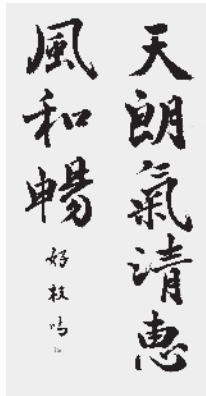 天朗氣清惠
風和暢
好枝鳴